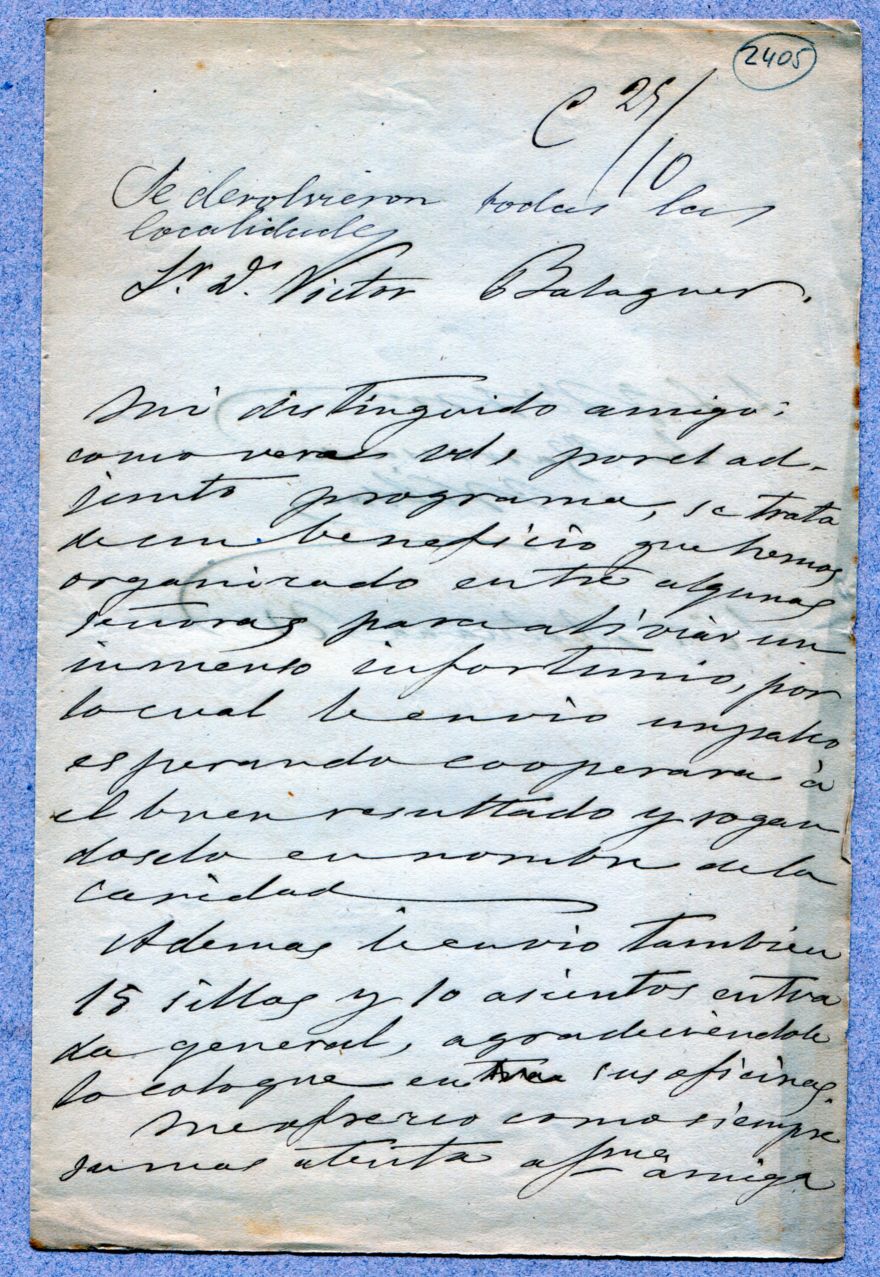 2405
C 25/10
Se devolvieron todas las
localidades
Sr. Dn. Victor Balaguer.
Mi distinguido amigo:
como vera vd, por el ad-
junto programa, se trata
de un beneficio que hemos
organizado entre algunas
señoras para aliviar un
inmenso infortunio, por
lo cual le envio un palco
esperando cooperara à
el buen resultado y rogan
doselo en nombre de la
caridad
Ademas le envio tambien
15 sillas y 10 asientos entra
da general, agradeciendole
lo coloque entre sus oficinas.
Me ofrezco como siempre
su mas atenta afma amiga